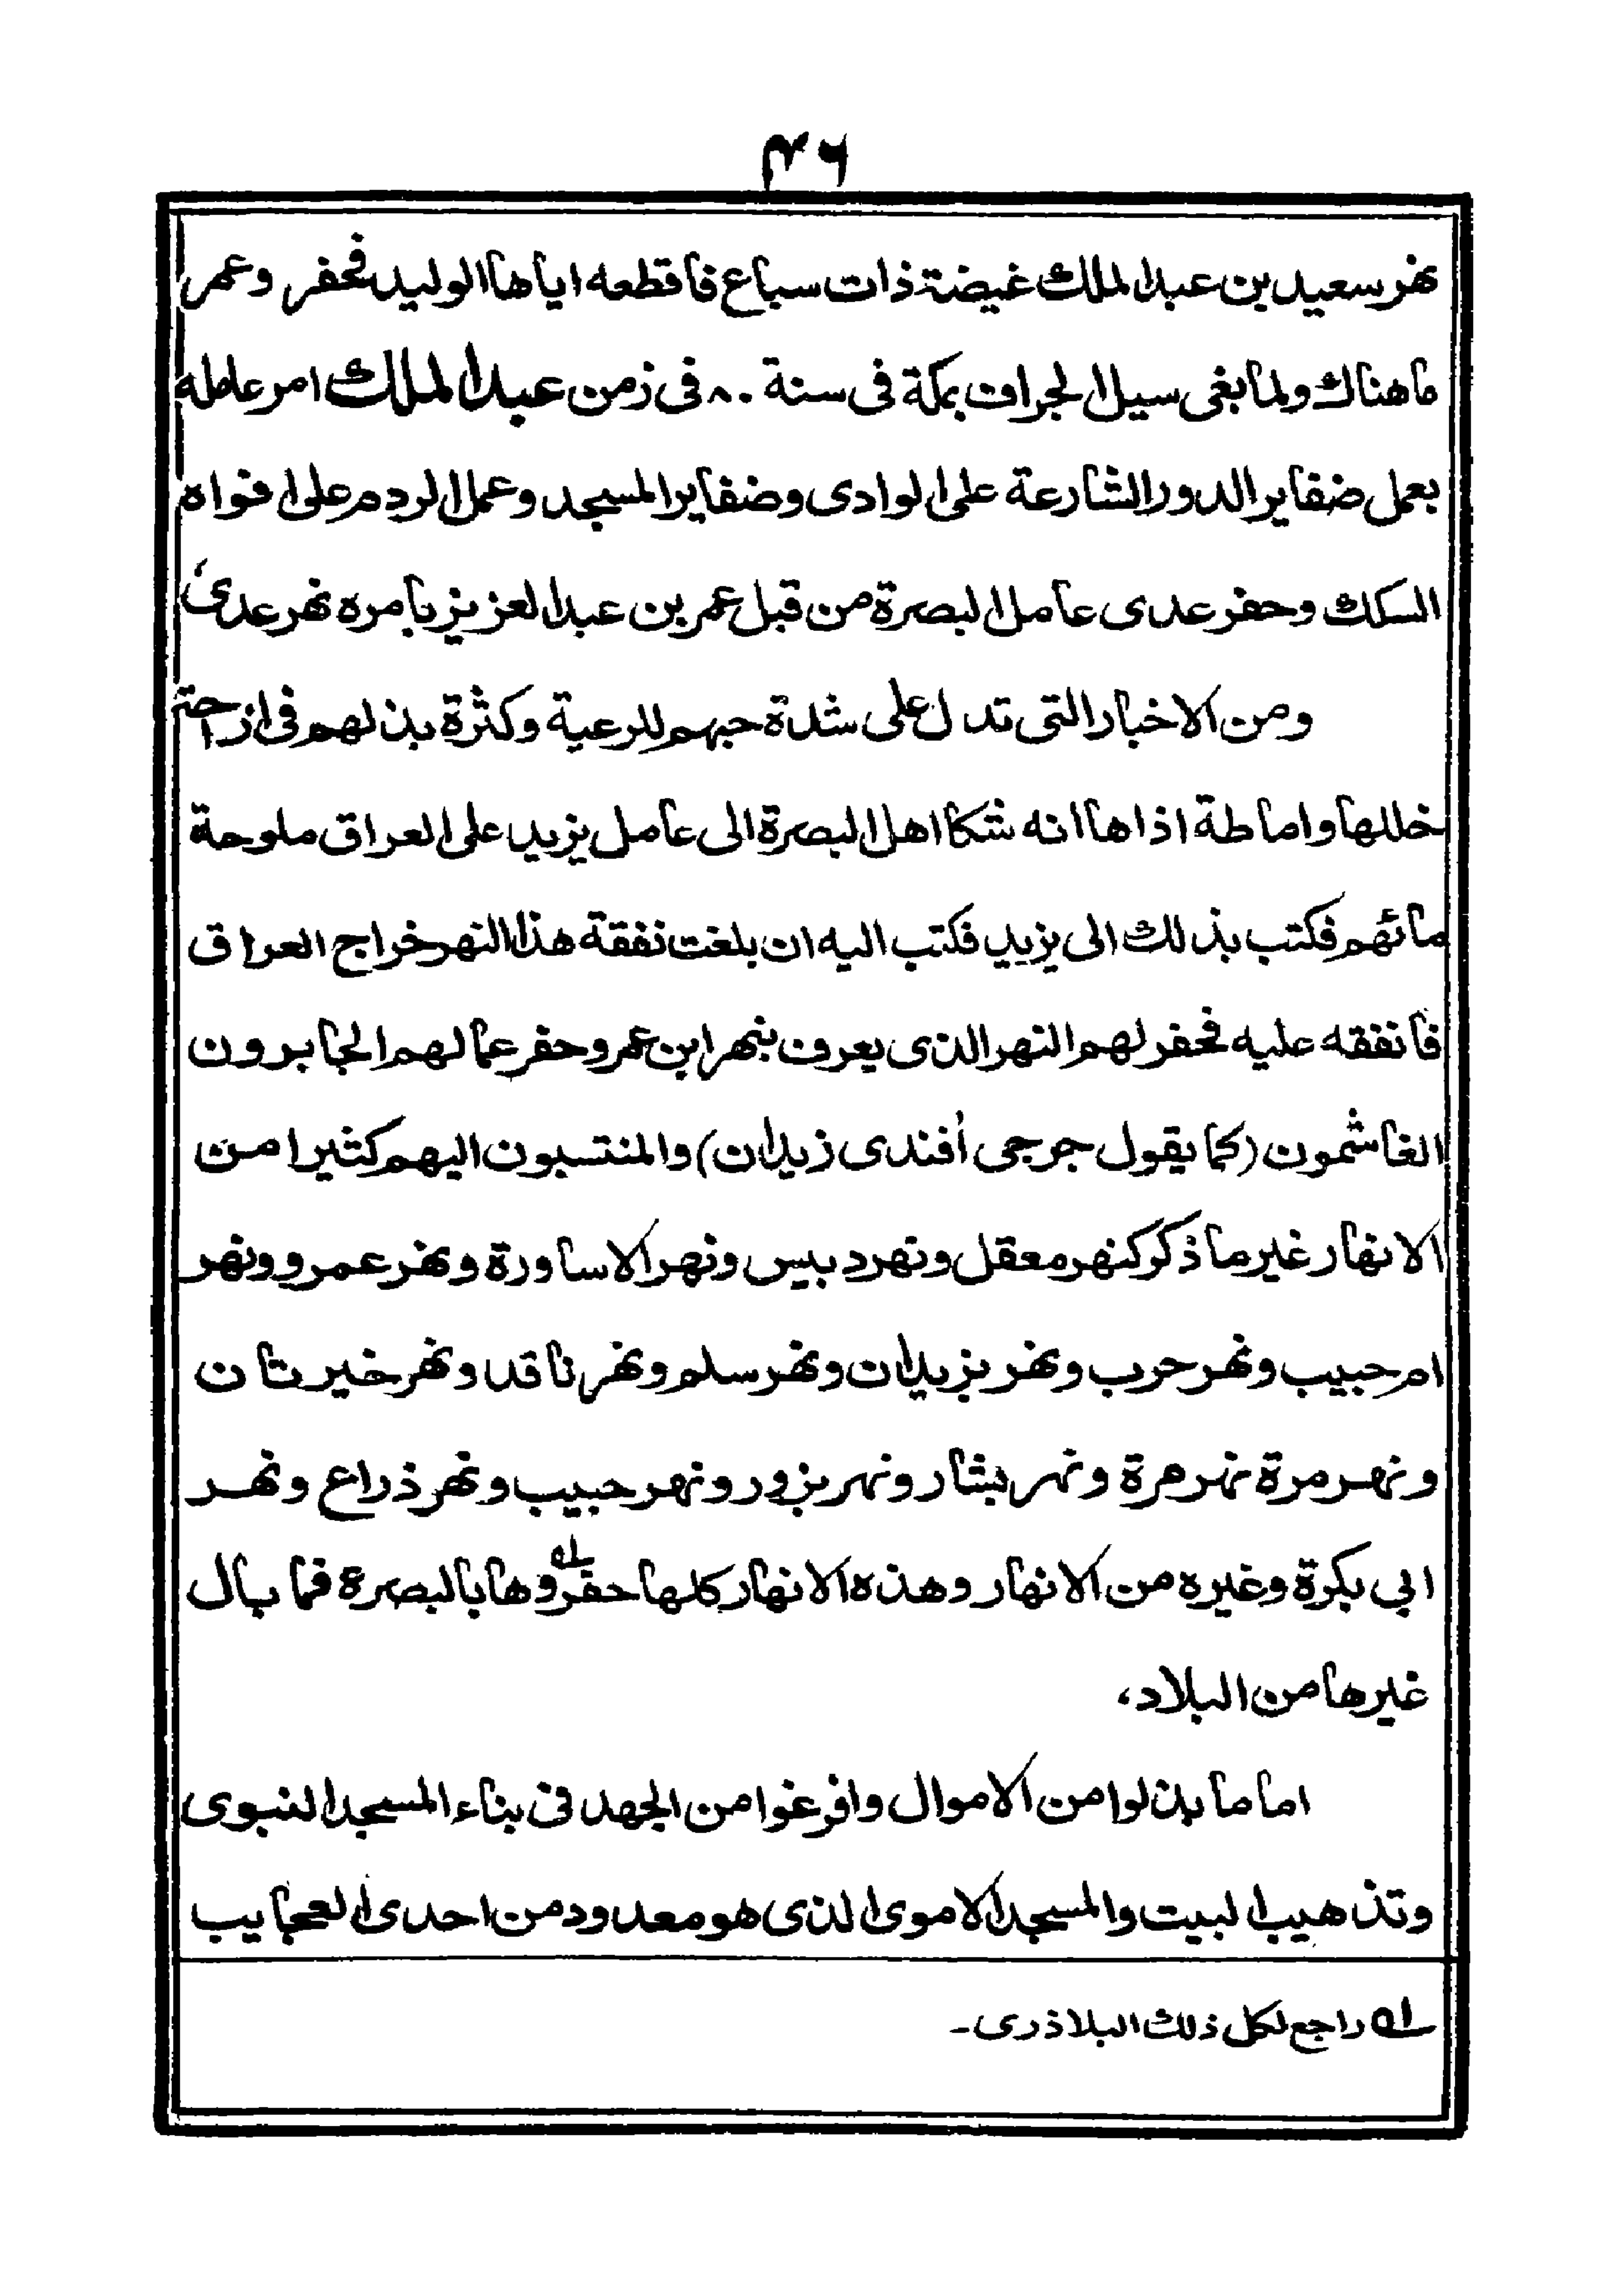 ٤٦
نهر سعيد بن عبد الملك غيضة ذات سباع فاقطعه اياها الوليد فحفر وعمر
ما هناك ولما بغى سيل الجراف بمكة فى سنة ٨٠ فى زمن عبد الملك امر عامله
بعمل ضفاير الدور الشارعة على الوادى وضفاير المسجد وعمل الردم على افواه
السكك وحفر عدى عامل البصرة من قبل عمر بن عبد العزيز بامره نهر عدىّ
ومن الاخبار التى تدل على شدة حبهم للرعية وكثرة بذلهم فى ازاحة
خللها واماطة اذاها انه شكا اهل البصرة الى عامل يزيد على العراق ملوحة
مائهم فكتب بذلك الى يزيد فكتب اليه ان بلغت نفقة هذا النهر خراج العراق
فانفقه عليه فحفر لهم النهر الذى يعرف بنهر ابن عمر وحفر عمالهم الجابرون
الغاشمون (كما يقول جرجى أفندى زيدان) والمنتسبون اليهم كثيرا من
الانهار غير ما ذكر كنهر معقل ونهر دبيس ونهر الاساورة ونهر عمرو ونهر
ام حبيب ونهر حرب ونهر يزيدان ونهر سلم ونهر ناقد ونهر خيرتان
ونهر مرة نهر مرة ونهر بشار ونهر بزور ونهر حبيب ونهر ذراع ونهر
ابي بكرة وغيره من الانهار وهذه الانهار كلها حفروها ؂۱ بالبصرة فما بال
غيرها من البلاد،
اما ما بذلوا من الاموال وافرغوا من الجهد فى بناء المسجد النبوى
وتذهيب البيت والمسجد الاموى الذى هو معدود من احدى العجايب
؂۱ راجع لكل ذلك البلاذرى-